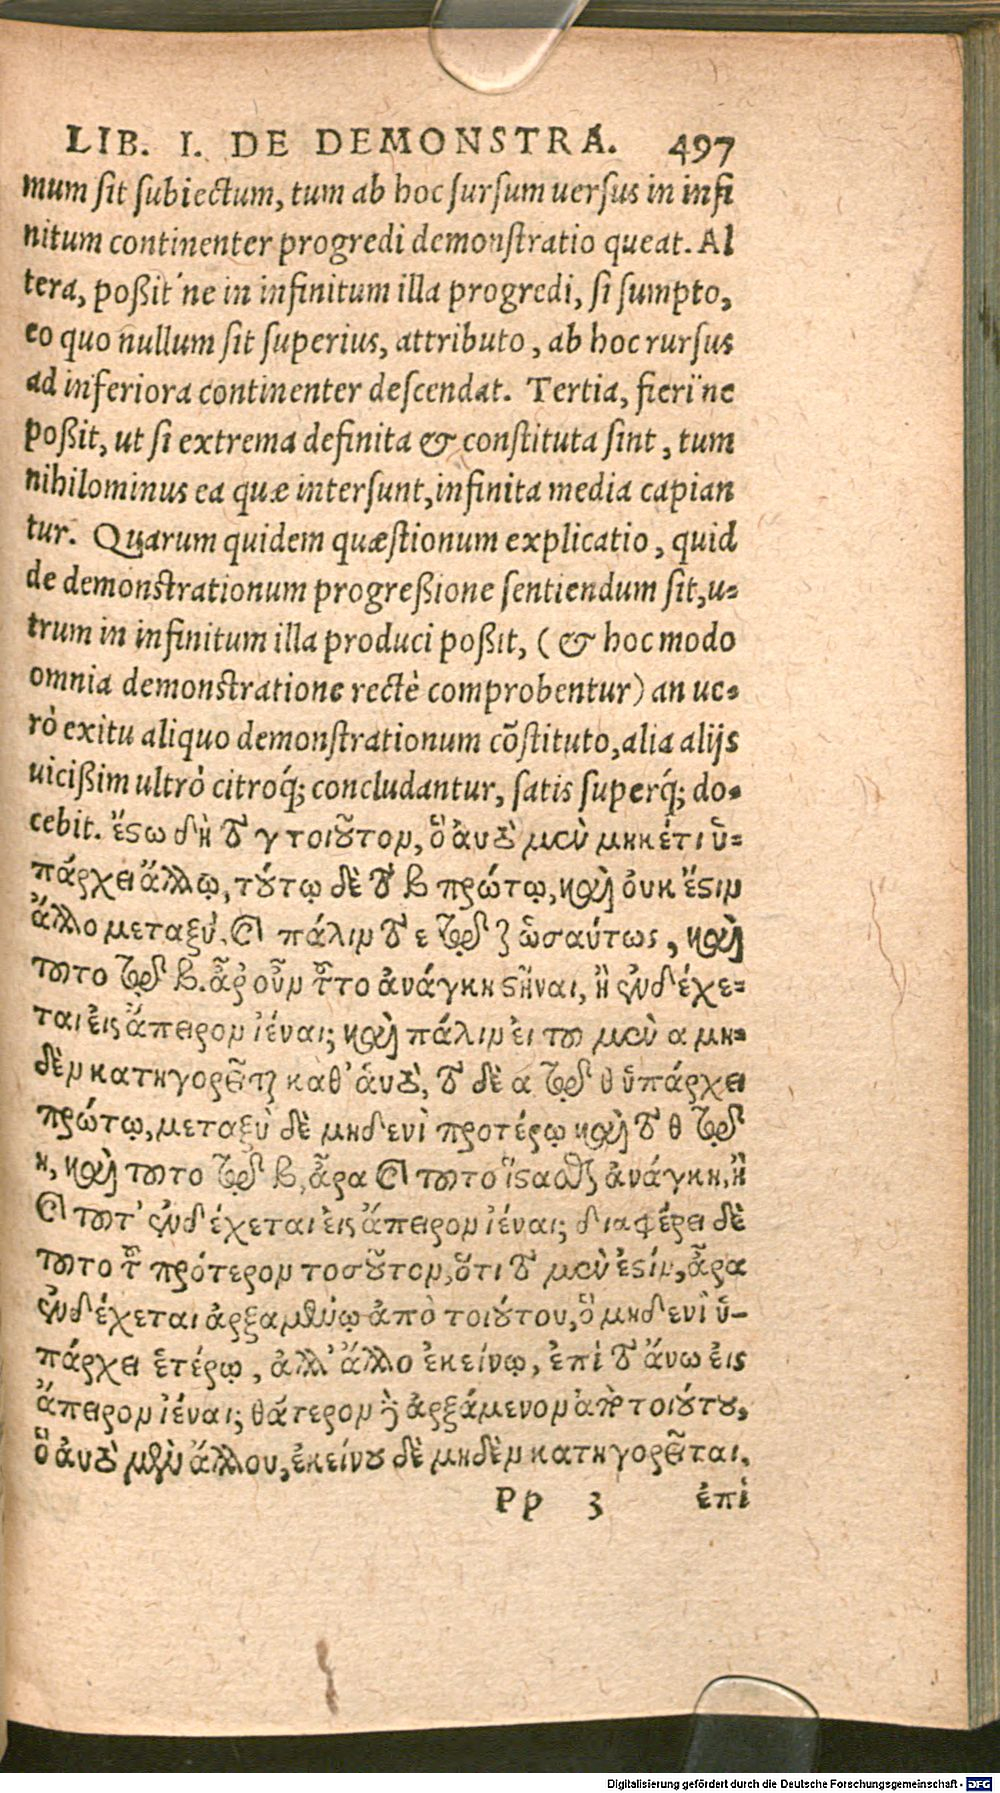 LIB. I. DE DEMONSTRA. 497
mum sit subiectum, tum ab hoc sursum uersus in infi
nitum continenter progredi demonstratio queat. Al
tera, poßit´ne in infinitum illa progredi, si sumpto,
eo quo nullum sit superius, attributo, ab hoc rursus
ad inferiora continenter descendat. Tertia, fieri´ne
poßit, ut si extrema definita & constituta sint, tum
nihilominus ea quæ intersunt, infinita media capian
tur. Quarum quidem quæstionum explicatio, quid
de demonstrationum progreßione sentiendum sit, u-
trum in infinitum illa produci poßit, (& hoc modo
omnia demonstratione rectè comprobentur) an ue-
rò exitu aliquo demonstrationum cõstituto, alia alijs
uicißim ultrò citroq́; concludantur, satis superq́; do-
cebit. ἔστω δὴ τὸ γ τοιοῦτον, ὃ αὐτὸ μὲν μηκέτι ὑ-
πάρχει ἄλλῳ, τούτῳ δὲ τὸ β πρώτῳ, καὶ οὐκ ἔστιν
ἄλλο μεταξύ. καὶ πάλιν τὸ ε τῷ ζ ὡσαύτως, καὶ
τοῦτο τῷ β. ἆρ οὖν τοῦτο ἀνάγκη στῆναι, ἢ ἐνδέχε-
ται εἰς ἄπειρον ἰέναι; καὶ πάλιν εἰ τοῦ μὲν α μη-
δὲν κατηγορεῖται καθ’ αὑτὸ, τὸ δὲ α τῷ θ ὑπάρχει
πρώτῳ, μεταξὺ δὲ μηδενὶ προτέρῳ καὶ τὸ θ τῷ
η, καὶ τοῦτο τῷ β, ἆρα καὶ τοῦτο ἵστασθαι ἀνάγκη, ἢ
καὶ τοῦτ’ ἐνδέχεται εἰς ἄπειρον ἰέναι; διαφέρει δὲ
τοῦτο τοῦ πρότερον τοσοῦτον, ὅτι τὸ μὲν ἐστίν, ἆρα
ἐνδέχεται ἀρξαμένῳ ἀπὸ τοιούτου, ὃ μηδενὶ ὑ-
πάρχει ἑτέρῳ, ἀλλ’ ἄλλο ἐκείνῳ, ἐπὶ τὸ ἄνω εἰς
ἄπειρον ἰέναι; θάτερον δὲ ἀρξάμενον ἀπὸ τοιούτου,
ὃ αὐτὸ μὲν ἄλλου, ἐκείνου δὲ μηδὲν κατηγορεῖται,
Pp 3 ἐπὶ
Digitalisierung gefördert durch die Deutsche Forschungsgemeinschaft - DFG